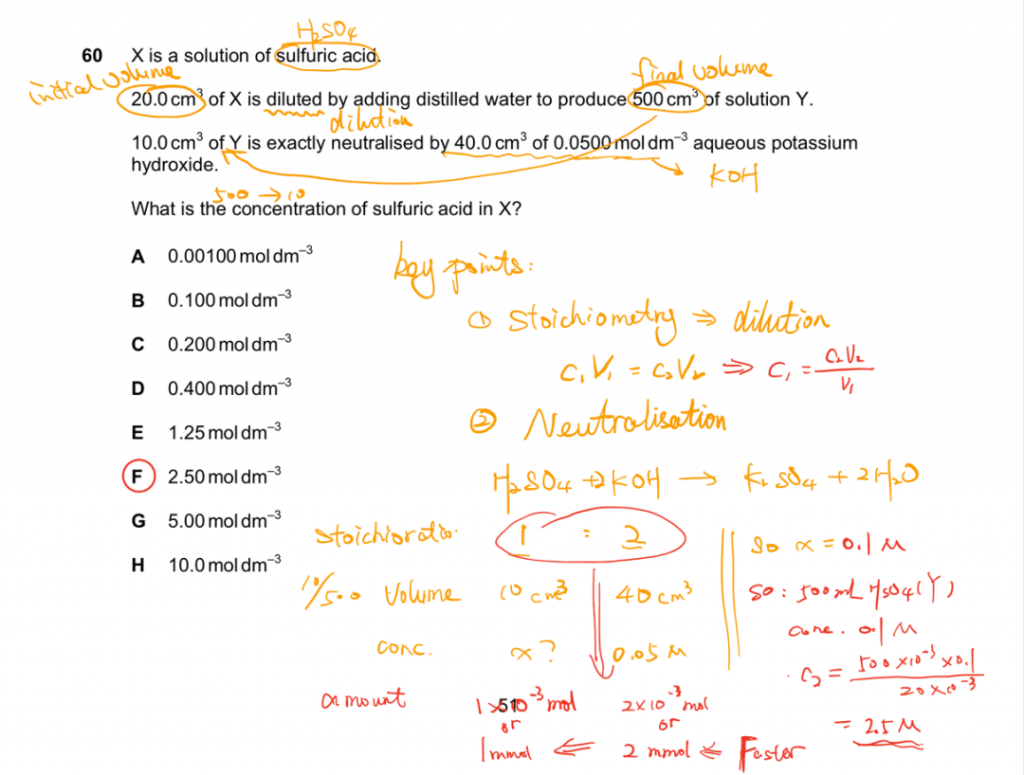 H₂SO₄
60 X is a solution of sulfuric acid.
initial volume
final volume
20.0 cm³ of X is diluted by adding distilled water to produce 500 cm³ of solution Y.
dilution
10.0 cm³ of Y is exactly neutralised by 40.0 cm³ of 0.0500 mol dm⁻³ aqueous potassium
hydroxide.
KOH
500 → 10
What is the concentration of sulfuric acid in X?
A 0.00100 mol dm⁻³
B 0.100 mol dm⁻³
C 0.200 mol dm⁻³
D 0.400 mol dm⁻³
E 1.25 mol dm⁻³
F 2.50 mol dm⁻³
G 5.00 mol dm⁻³
H 10.0 mol dm⁻³
key points:
① Stoichiometry ⇒ dilution
C₁V₁ = C₂V₂ ⇒ C₁ = C₂V₂ / V₁
② Neutralisation
H₂SO₄ + 2KOH → K₂SO₄ + 2H₂O
stoichioratio. 1 : 2
10/500 Volume 10 cm³ 40 cm³
conc. x? 0.05 M
amount 1×10⁻³ mol 2×10⁻³ mol
51
or or
1 mmol ⇐ 2 mmol ⇐ Faster
so x = 0.1 M
so: 500 mL H₂SO₄ (Y)
conc. 0.1 M
C₂ = 500×10⁻³ × 0.1 / 20×10⁻³
= 2.5 M